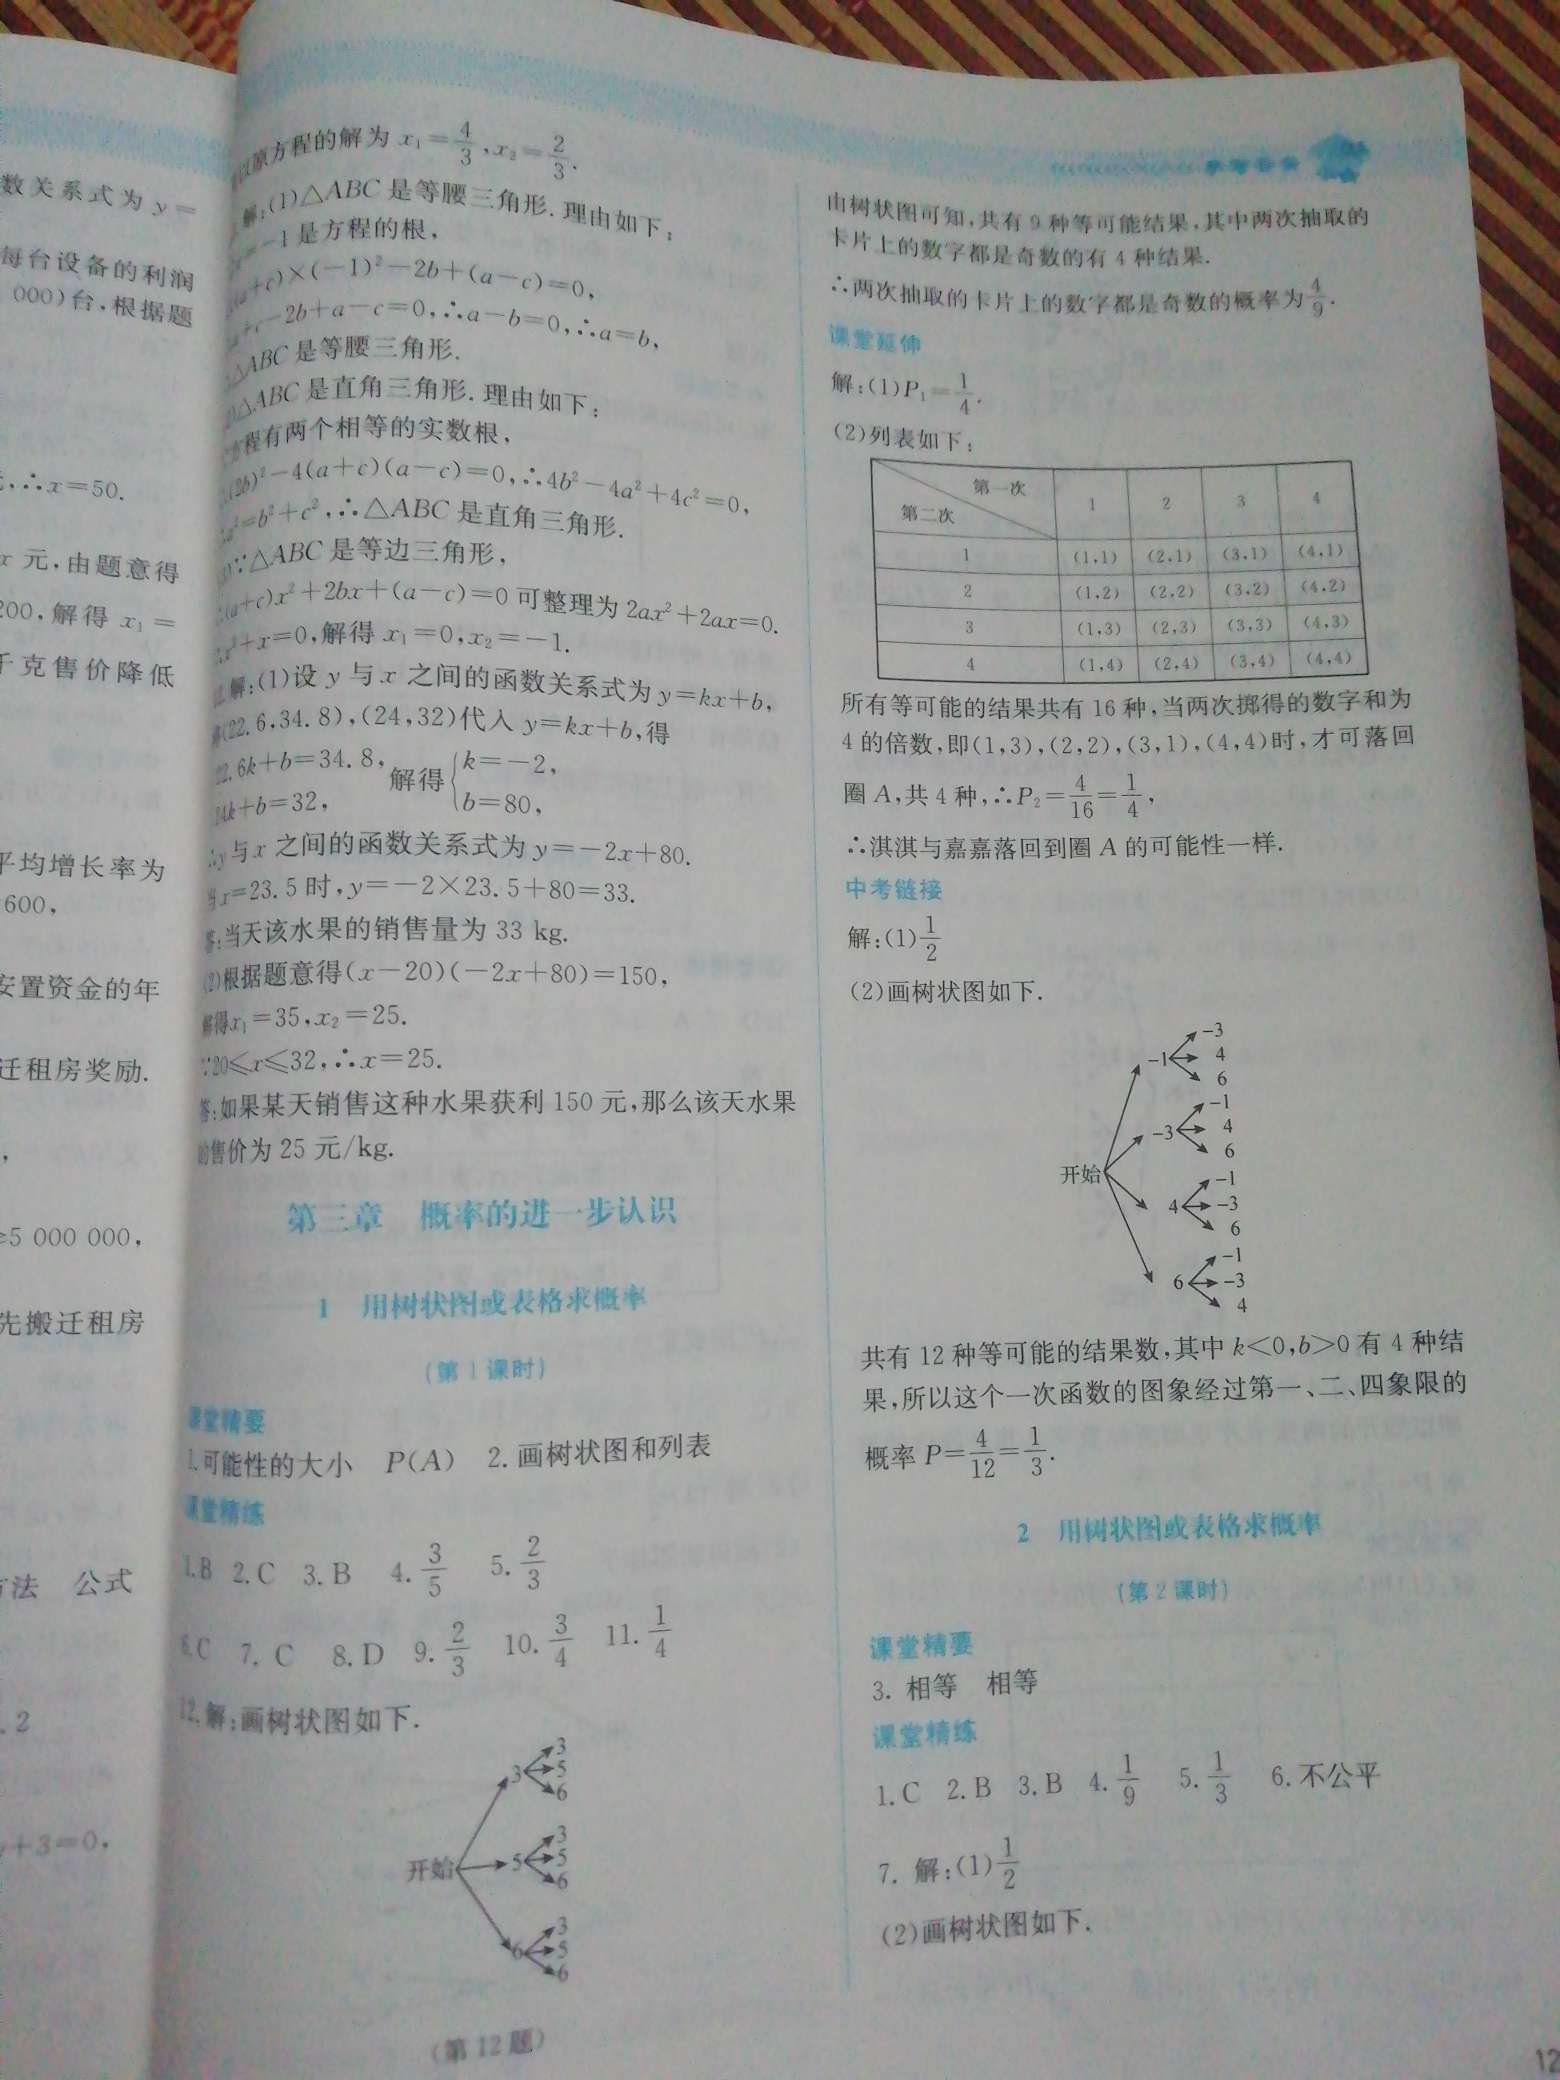 数关系式为 y=
每台设备的利润
000)台,根据题
∴x=50.
x 元,由题意得
200,解得 x₁=
千克售价降低
平均增长率为
600,
安置资金的年
迁租房奖励.
=5 000 000,
先搬迁租房
方法 公式
.2
+3=0,
原方程的解为 x₁=4/3,x₂=2/3.
解:(1)△ABC 是等腰三角形.理由如下:
-1 是方程的根,
(a+c)×(-1)²-2b+(a-c)=0,
a+c-2b+a-c=0,∴a-b=0,∴a=b,
△ABC 是等腰三角形.
△ABC 是直角三角形.理由如下:
方程有两个相等的实数根,
(2b)²-4(a+c)(a-c)=0,∴4b²-4a²+4c²=0,
a²=b²+c²,∴△ABC 是直角三角形.
∵△ABC 是等边三角形,
(a+c)x²+2bx+(a-c)=0 可整理为 2ax²+2ax=0.
x²+x=0,解得 x₁=0,x₂=-1.
解:(1)设 y 与 x 之间的函数关系式为 y=kx+b,
将(22.6,34.8),(24,32)代入 y=kx+b,得
22.6k+b=34.8, 解得 {k=-2,
24k+b=32, b=80,
∴y与x 之间的函数关系式为 y=-2x+80.
当x=23.5 时,y=-2×23.5+80=33.
答:当天该水果的销售量为 33 kg.
(2)根据题意得(x-20)(-2x+80)=150,
解得x₁=35,x₂=25.
∵20≤x≤32,∴x=25.
答:如果某天销售这种水果获利 150 元,那么该天水果
的售价为 25 元/kg.
第三章 概率的进一步认识
1 用树状图或表格求概率
(第 1 课时)
课堂精要
1.可能性的大小 P(A) 2.画树状图和列表
课堂精练
1.B 2.C 3.B 4.3/5 5.2/3
6.C 7.C 8.D 9.2/3 10.3/4 11.1/4
12.解:画树状图如下.
3
3 5
6
3
开始 5 5
6
3
6 5
6
(第 12 题)
参考答案
由树状图可知,共有 9 种等可能结果,其中两次抽取的
卡片上的数字都是奇数的有 4 种结果.
∴两次抽取的卡片上的数字都是奇数的概率为4/9.
课堂延伸
解:(1)P₁=1/4.
(2)列表如下:
第一次 1 2 3 4
第二次
1 (1,1) (2,1) (3,1) (4,1)
2 (1,2) (2,2) (3,2) (4,2)
3 (1,3) (2,3) (3,3) (4,3)
4 (1,4) (2,4) (3,4) (4,4)
所有等可能的结果共有 16 种,当两次掷得的数字和为
4 的倍数,即(1,3),(2,2),(3,1),(4,4)时,才可落回
圈 A,共 4 种,∴P₂=4/16=1/4,
∴淇淇与嘉嘉落回到圈 A 的可能性一样.
中考链接
解:(1)1/2
(2)画树状图如下.
-3
-1 4
6
-1
-3 4
6
开始
-1
4 -3
6
-1
6 -3
4
共有 12 种等可能的结果数,其中 k<0,b>0 有 4 种结
果,所以这个一次函数的图象经过第一、二、四象限的
概率 P=4/12=1/3.
2 用树状图或表格求概率
(第 2 课时)
课堂精要
3. 相等 相等
课堂精练
1.C 2.B 3.B 4.1/9 5.1/3 6.不公平
7. 解:(1)1/2
(2)画树状图如下.
12